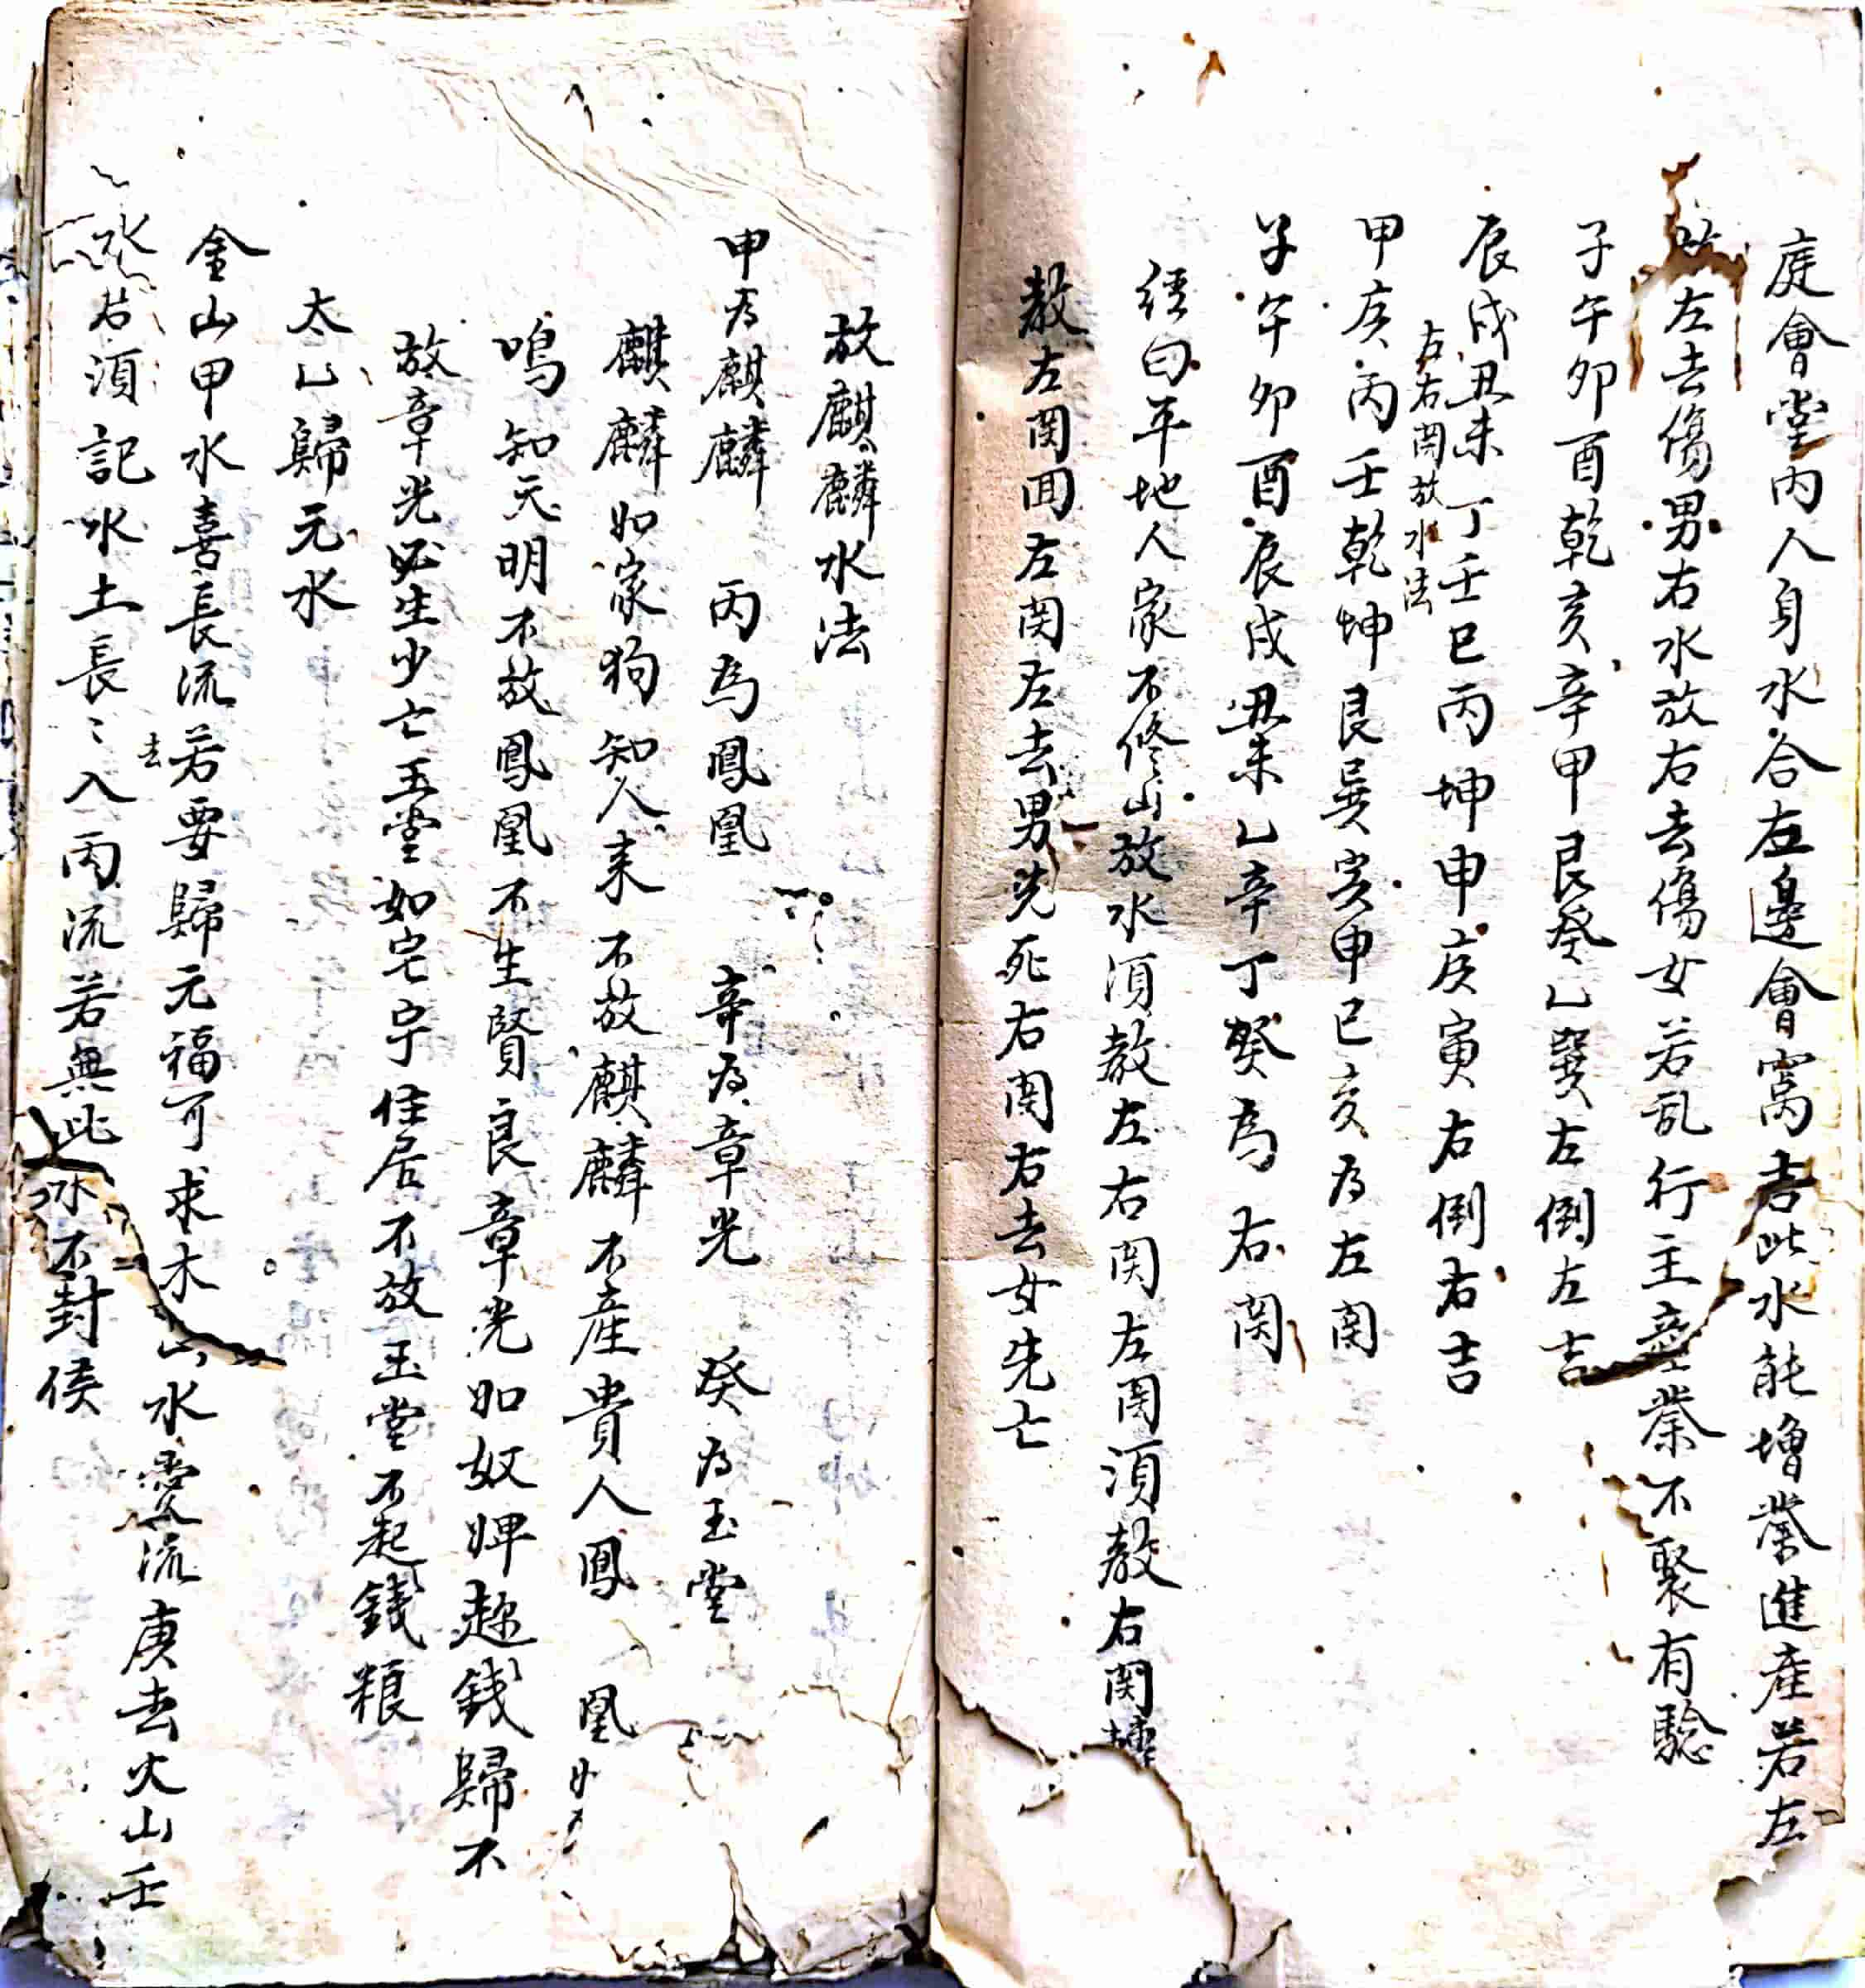 庭會堂內人身水合左邊會窩吉此水能增榮進産若左
左去傷男右水放右去傷女若乱行主産業不聚有驗
子午卯酉乾亥辛甲艮癸乙巽左倒左吉
辰戌丑未丁壬巳丙坤申庚寅右倒右吉
左右関放水法
甲庚丙壬乾坤艮巽寅申巳亥为左関
子午卯酉辰戌丑未乙辛丁癸為右関
経曰平地人家不修山放水須教左右関左関須教右関
教左関囬左関左去男先死右関右去女先亡
放麒麟水法
甲为麒麟 丙為鳳凰 辛为章光 癸为玉堂
麒麟如家狗知人来不放麒麟不産貴人鳳凰
鳴知天明不放鳳凰不生賢良章光如奴婢趂錢歸不
放章光必生少亡玉堂如宅宇住居不放玉堂不起錢粮
太乙歸元水
金山甲水喜長流去若要歸元福可求木山水愛流庚去火山壬
水右須記水土長〻入丙流若無此水不封侯